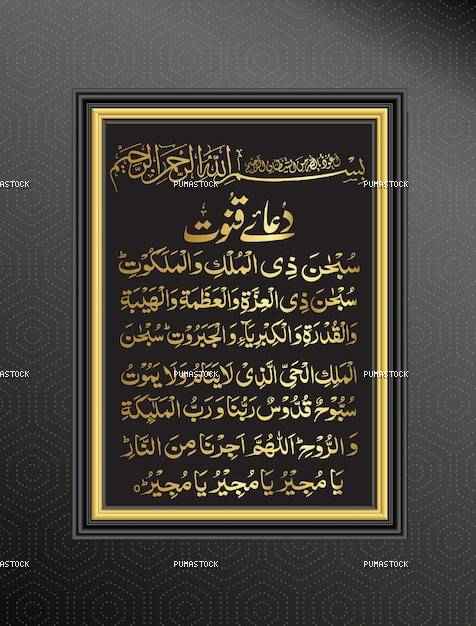 اعوذ بالله من الشیطان الرجیم
بسم الله الرحمن الرحیم
دعائے قنوت
سُبْحٰنَ ذِی الْمُلْكِ وَالْمَلَكُوْتِ ط
سُبْحٰنَ ذِی الْعِزَّةِ وَالْعَظَمَةِ وَالْهَيْبَةِ
وَالْقُدْرَةِ وَالْكِبْرِيَآءِ وَالْجَبَرُوْتِ ط سُبْحٰنَ
الْمَلِكِ الْحَیِّ الَّذِیْ لَا يَنَامُ وَلَا يَمُوْتُ
سُبُّوْحٌ قُدُّوْسٌ رَبُّنَا وَرَبُّ الْمَلٰٓئِكَةِ
وَالرُّوْحِ ط اَللّٰهُمَّ اَجِرْنَا مِنَ النَّارِ ط
يَا مُجِيْرُ يَا مُجِيْرُ يَا مُجِيْرُ ط
PUMASTOCK PUMASTOCK PUMASTOCK
PUMASTOCK PUMASTOCK PUMASTOCK
PUMASTOCK PUMASTOCK PUMASTOCK